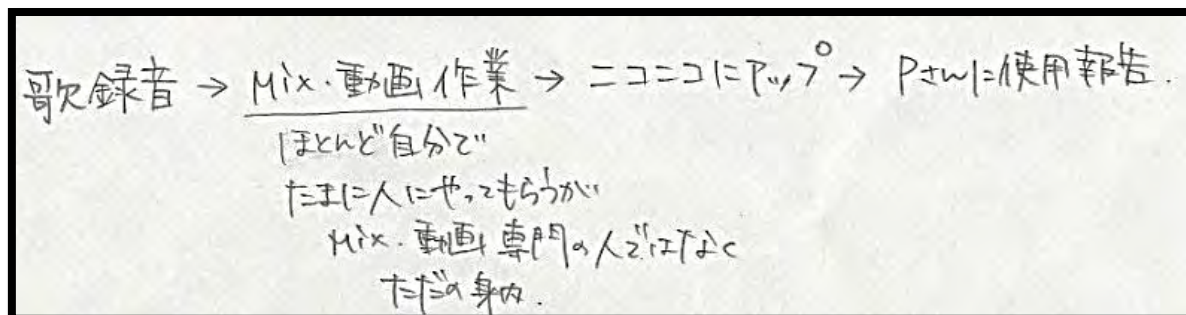 歌録音 → Mix・動画作業 → ニコニコにアップ → Pさんに使用報告.
ほとんど自分で
たまに人にやってもらうが
Mix・動画専門の人ではなく
ただの身内.